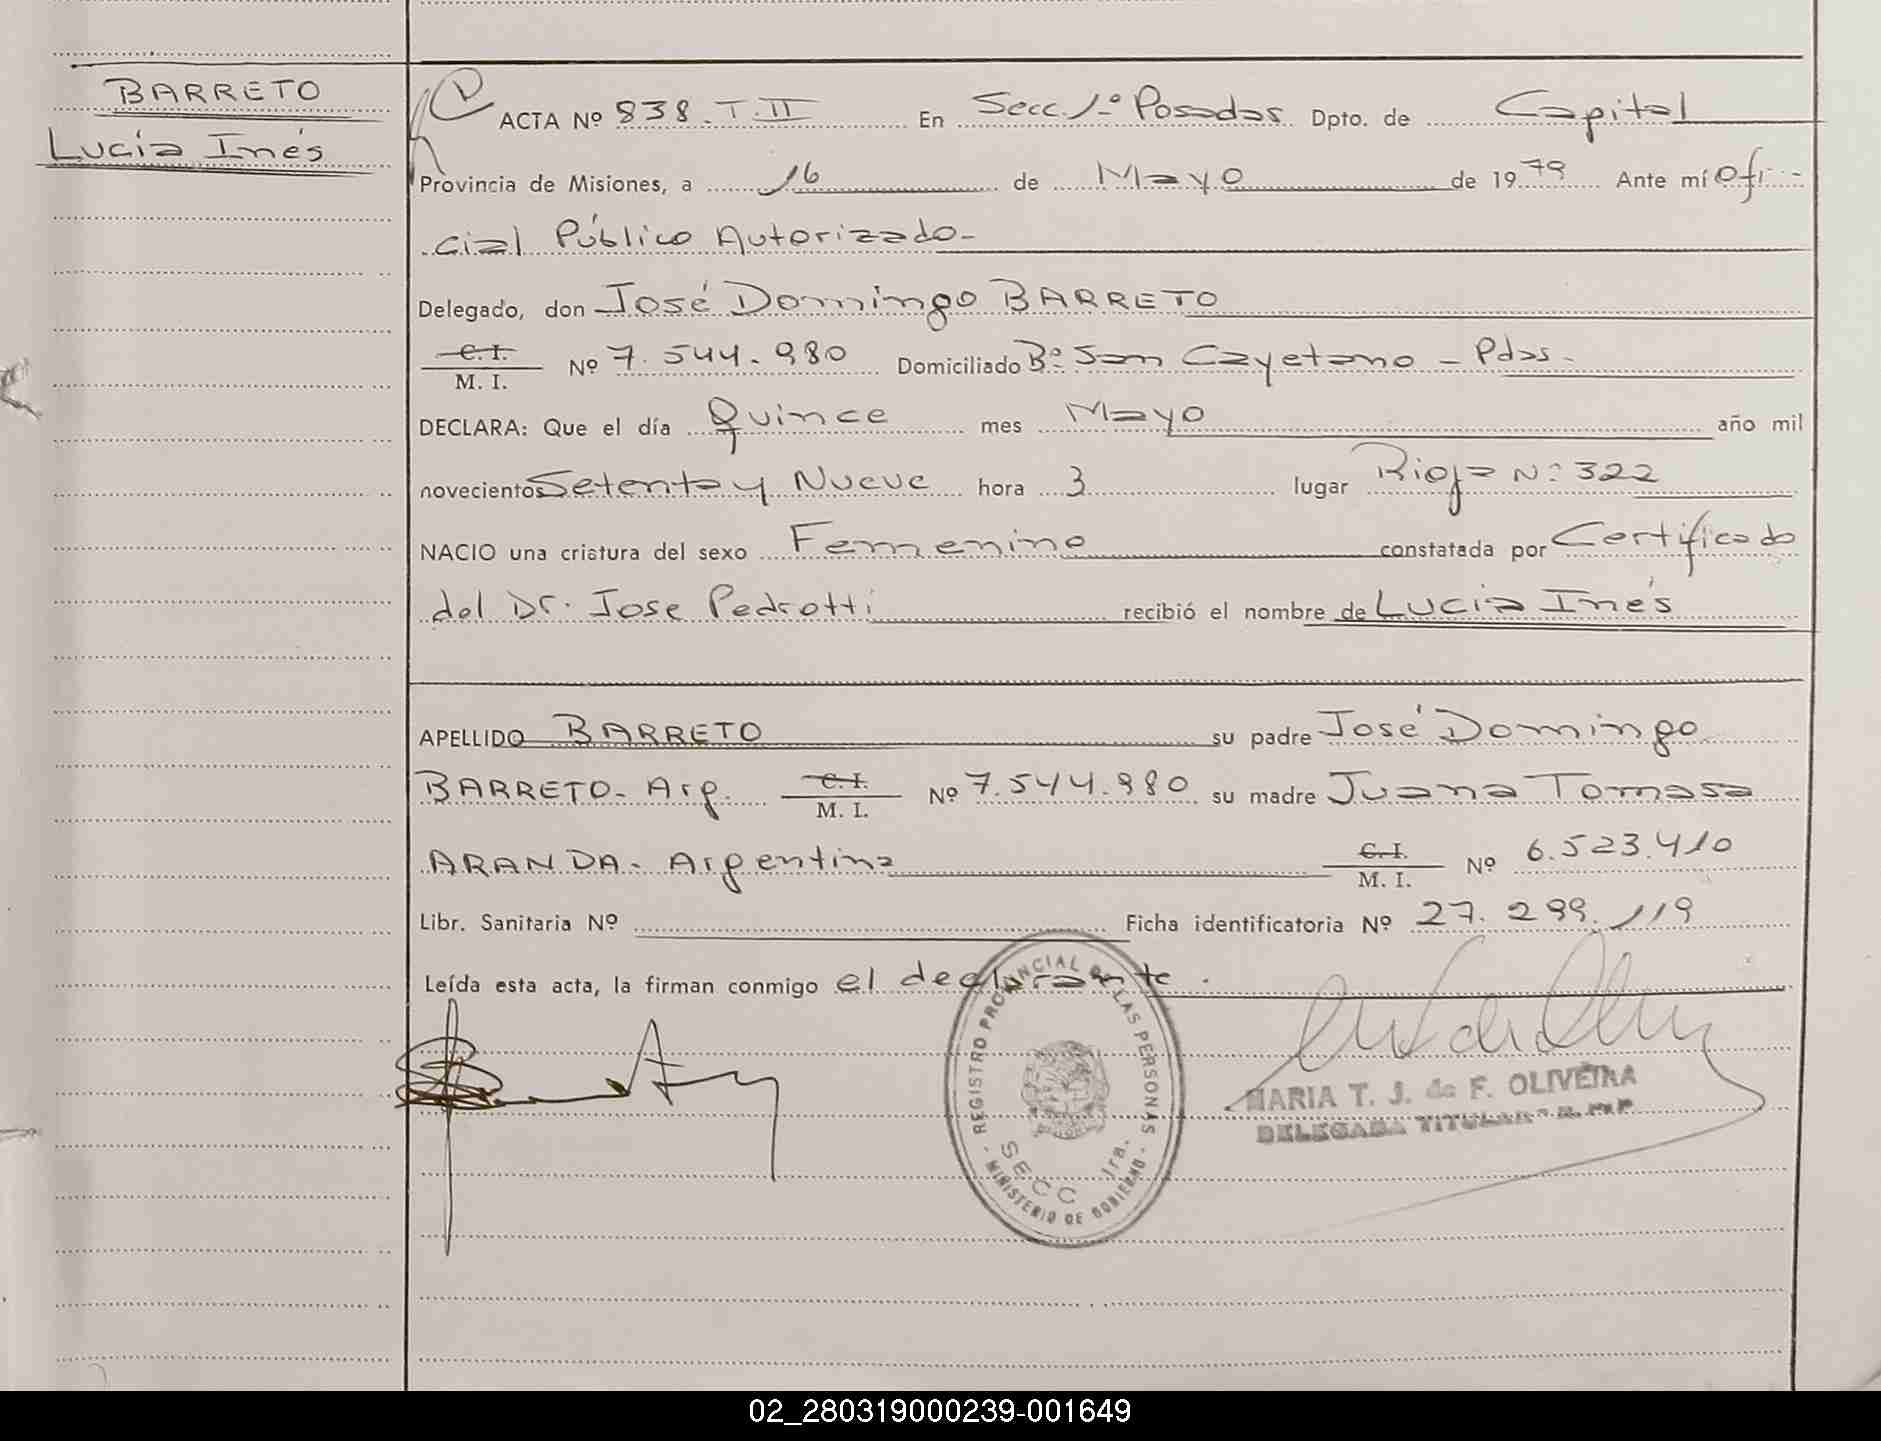 BARRETO
Lucía Inés
ACTA Nº 838. T. II En Secc. 1º Posadas Dpto. de Capital
Provincia de Misiones, a 16 de Mayo de 1979 Ante mí Ofi-
cial Público Autorizado-
Delegado, don José Domingo BARRETO
C. I.
M. I. Nº 7.544.980 Domiciliado Bº San Cayetano - Pdas-
DECLARA: Que el día Quince mes Mayo año mil
novecientos Setenta y Nueve hora 3 lugar Rioja Nº 322
NACIO una criatura del sexo Femenino constatada por Certificado
del Dr. Jose Pedrotti recibió el nombre de Lucía Inés
APELLIDO BARRETO su padre José Domingo
BARRETO- Arg. C. I. M. I. Nº 7.544.980 su madre Juana Tomasa
ARANDA- Argentina C. I. M. I. Nº 6.523.410
Libr. Sanitaria Nº Ficha identificatoria Nº 27.299.119
Leída esta acta, la firman conmigo el declarante.
REGISTRO PROVINCIAL DE LAS PERSONAS
SECC 1ra.
- MINISTERIO DE GOBIERNO -
MARIA T. J. de F. OLIVEIRA
DELEGADA TITULAR
02_280319000239-001649